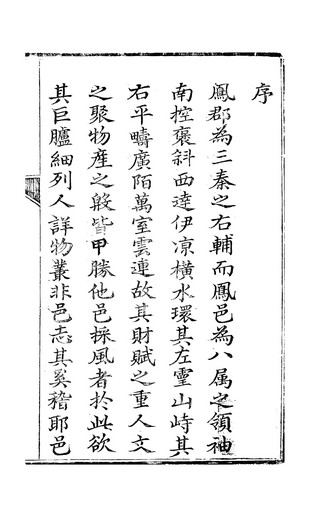 序
鳳郡為三秦之右輔而鳳邑為八属之領袖
南控褒斜西達伊凉橫水環其左靈山峙其
右平疇廣陌萬室雲連故其財賦之重人文
之聚物產之殷皆甲勝他邑採風者於此欲
其巨臚細列人詳物叢非邑志其奚稽耶邑